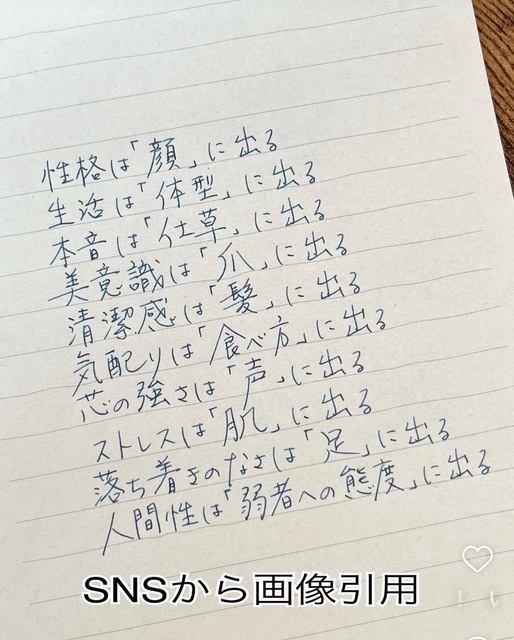 性格は「顔」に出る
生活は「体型」に出る
本音は「仕草」に出る
美意識は「爪」に出る
清潔感は「髪」に出る
気配りは「食べ方」に出る
芯の強さは「声」に出る
ストレスは「肌」に出る
落ち着きのなさは「足」に出る
人間性は「弱者への態度」に出る
SNSから画像引用